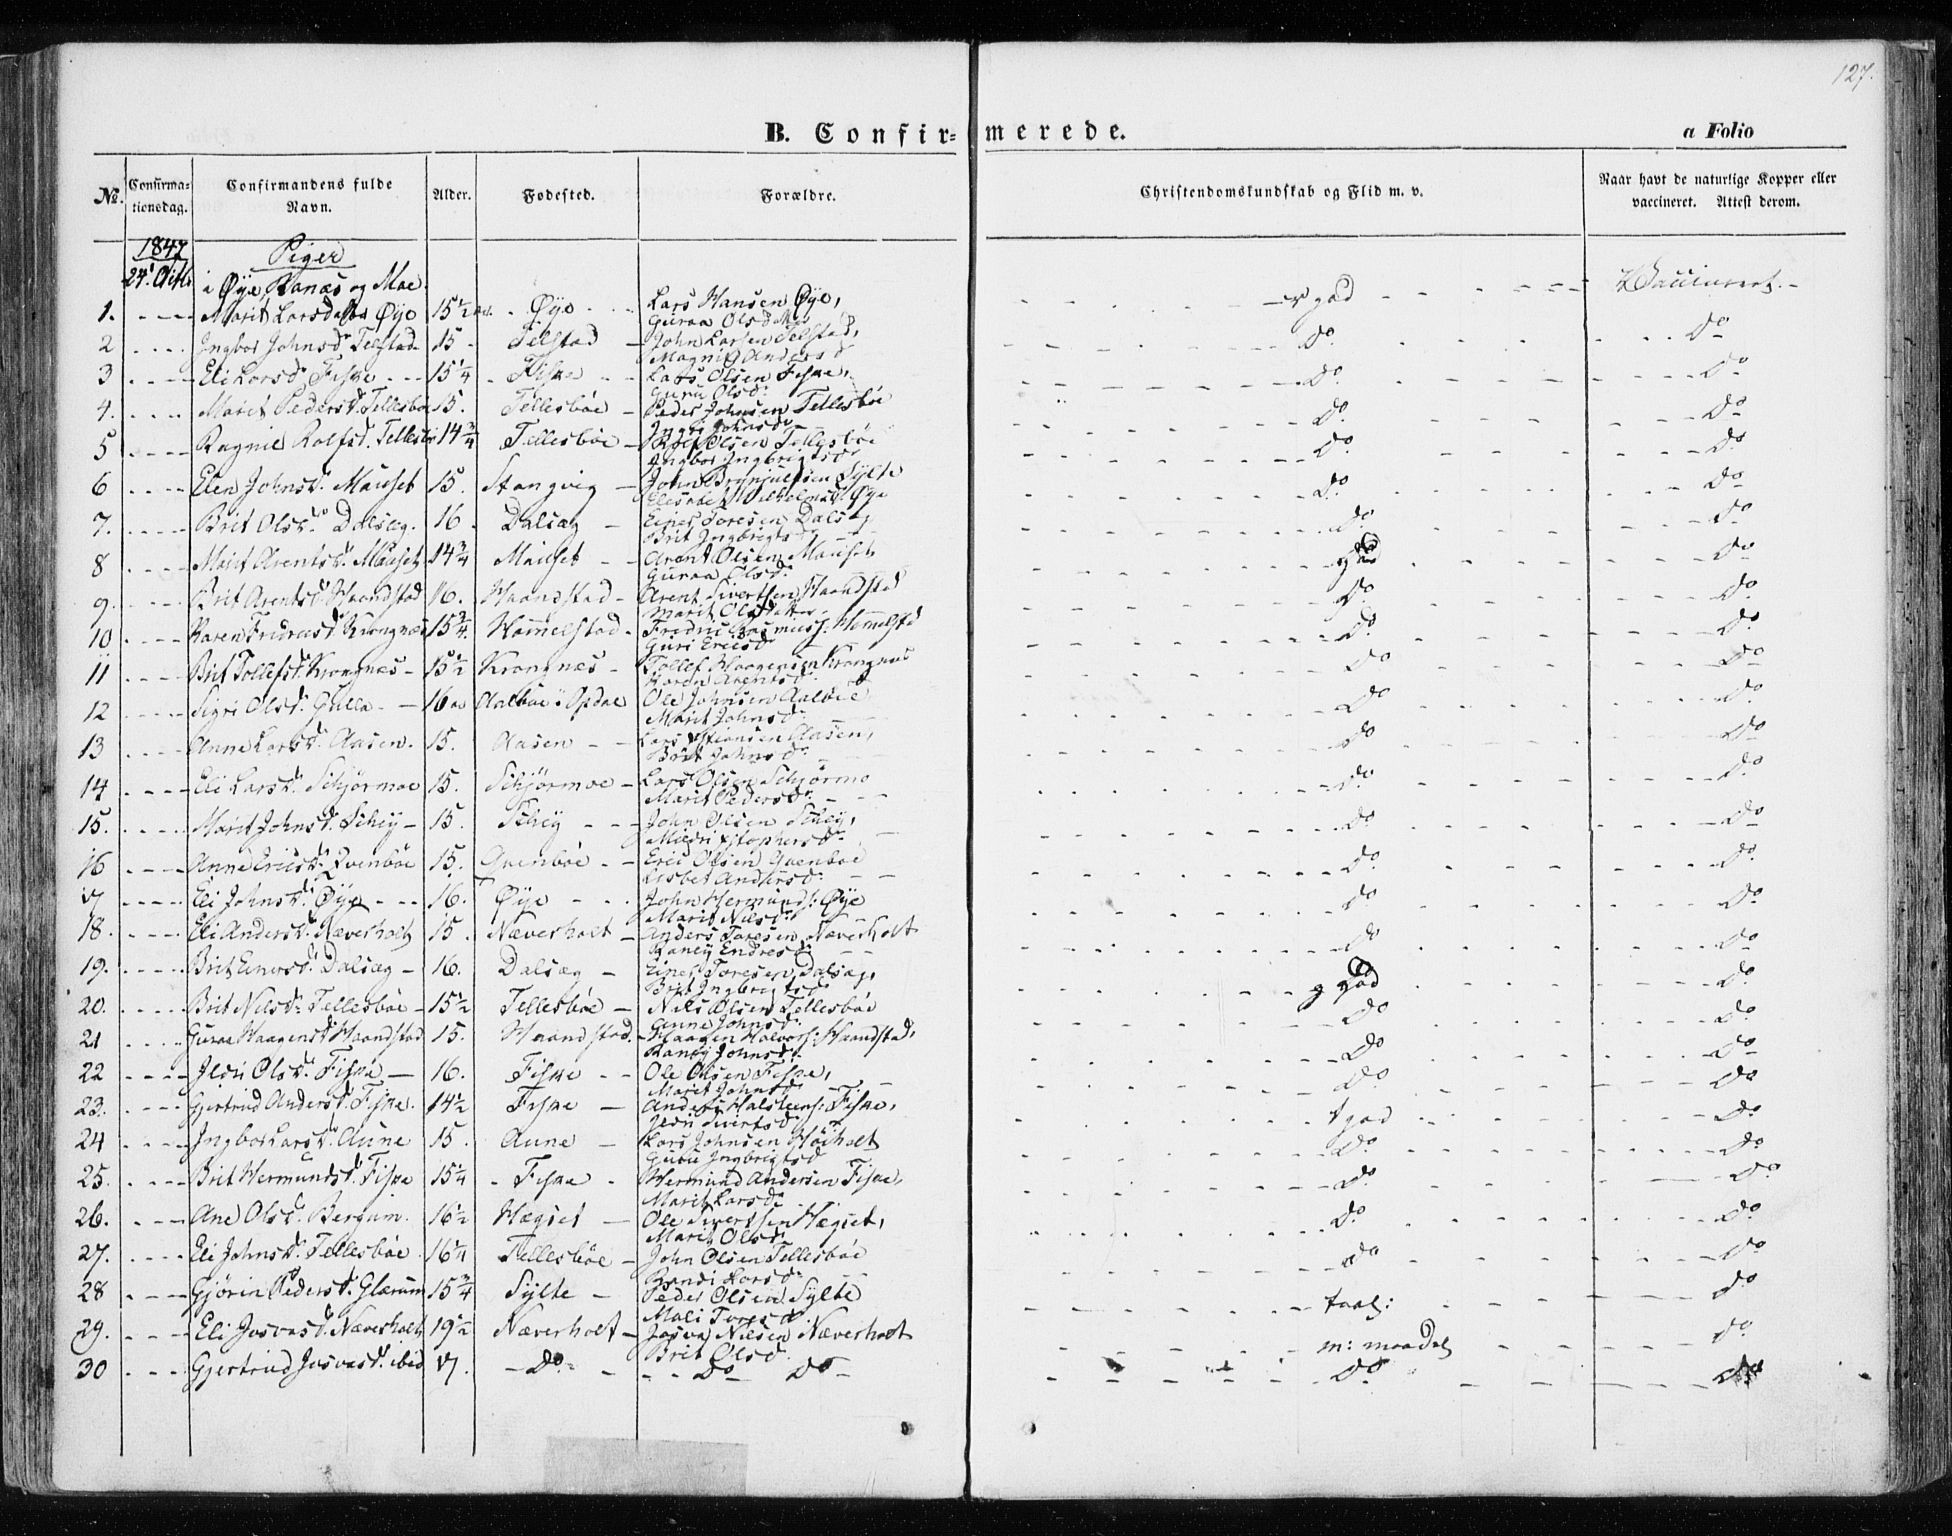 127.
B. Confir= merede.
a Folio
No. Confirma= tionsdag. Confirmandens fulde Navn. Alder. Fødested. Forældre. Christendomskundskab og Flid m. v. Naar havt de naturlige Kopper eller vaccineret. Attest derom.
1847 Piger
24de Octb. i Øye, Ranæs og Moe
1. Marit Larsdatter Øye 15 1/2 Øye Lars Hansen Øye, Guraa Olsdatter god Vaccineret
2 Ingbor Johnsdr Telstad 15 Telstad John Larsen Telstad, Magnil Andersd Do Do
3 Eli Larsdr Fiske 15 1/4 Fiske Lars Olsen Fiske, Guru Olsdr Do Do
4. Marit Pedersdr Tellesbøe 15. Tellesbøe Peder Johnsen Tellesbøe Ingri Johnsdr Do Do
5 Ragnil Rolfsd. Tellesbø 14 3/4 Tellesbøe Rolf Olsen Tellesbøe Ingbor Ingbrigtsdr Do Do
6 Elen Johnsdr Mauset 15. Stangvig John Brynjulfsen Sylte Elisabet Vilhelmsd Øye Do Do
7. Brit Olsdr Dalsæg. 16 Dalsæg Einer Toresen Dalsæg Brit Ingbrigtsdr Do Do
8 Marit Arentsdr Mauset 14 3/4 Mauset Arent Olsen Mauset, Guraa Olsdr Do
9. Brit Arentsdr Haandstad 16. Haandstad Arent Sivertsen Haandstad Marit Olsdatter Do Do
10 Karen Fridricsdr Krongnæs 15 3/4 Hammelstad Fredric Rasmuss: Hammelstd Guri Ericsd Do Do
11 Brit Tollefsdr Krongnæs 15 1/2 Krongnæs Tollef Haagensen Krongnæs Karen Arentsd Do Do
12 Sigri Olsdr Gulla 16 Aalbøe i Opdal Ole Johnsen Aalbøe Marit Johnsdr Do Do
13 Anne Larsdr Aasen. 15. Aasen Lars Stiansen Aasen, Brit Johnsdr Do Do
14 Eli Larsdr Schjørmoe 15. Schjørmoe Lars Olsen Schjørmo Marit Pedersdr Do Do
15. Marit Johnsdr Schey 15. Schey John Olsen Schey, Mildri Xstophersdr Do Do
16 Anne Ericsdr Qvenbøe 15. Qvenbøe Eric Olsen Qvenbøe Lisbet Andersdr Do Do
17 Eli Johnsdr Øye 16. Øye John Hermunds: Øye Marit Nilsdr Do Do
18. Eli Andersdr Næverholt 15. Næverholt Anders Toresen Næverholt Raney Endresdr Do Do
19. Brit Einersdr Dalsæg 16. Dalsæg Einer Toresen Dalsæg, Brit Ingbrigtsd god Do
20. Brit Nilsdr Tellesbøe 15 1/2 Tellesbøe Nils Olsen Tellesbøe Anne Johnsdr Do Do
21 Guraa Haagensdr Haandstad 15. Haandstad. Haagen Halvors: Haandstad, Raney Johnsdr Do Do
22 Jldri Olsdr Fiske 16. Fiske Ole Olsen Fiske, Marit Johnsdr Do Do
23. Gjertrud Andersdr Fiske. 14 1/2 Fiske Anders Halsteens: Fiske, Jldri Sivertsdr tgod Do
24 Ingbor Larsdr Aune 15. Aune Lars Johnsen Høiholt Guru Ingbrigtsd Do Do
25. Brit Hermundsdr Fiske 15 1/4 Fiske Hermund Andersen Fiske, Marit Larsdr Do Do
26. Ane Olsdr Bergum. 16 1/2 Hægset Ole Sivertsen Hægset, Marit Olsdr Do Do
27. Eli Johnsdr Tellesbøe 16 1/4 Tellesbøe John Olsen Tellesbøe Randi Larsdr Do Do
28 Gjørin Pedersdr Glærum 15 3/4 Sylte Peder Olsen Sylte Mali Toresdr taal: Do
29. Eli Josvasdr Næverholt 19 1/2 Næverholt Josva Nilsen Næverholt Brit Olsd. m: maadel Do
30 Gjertrud Josvasdr ibid 17. Do Do Do Do Do